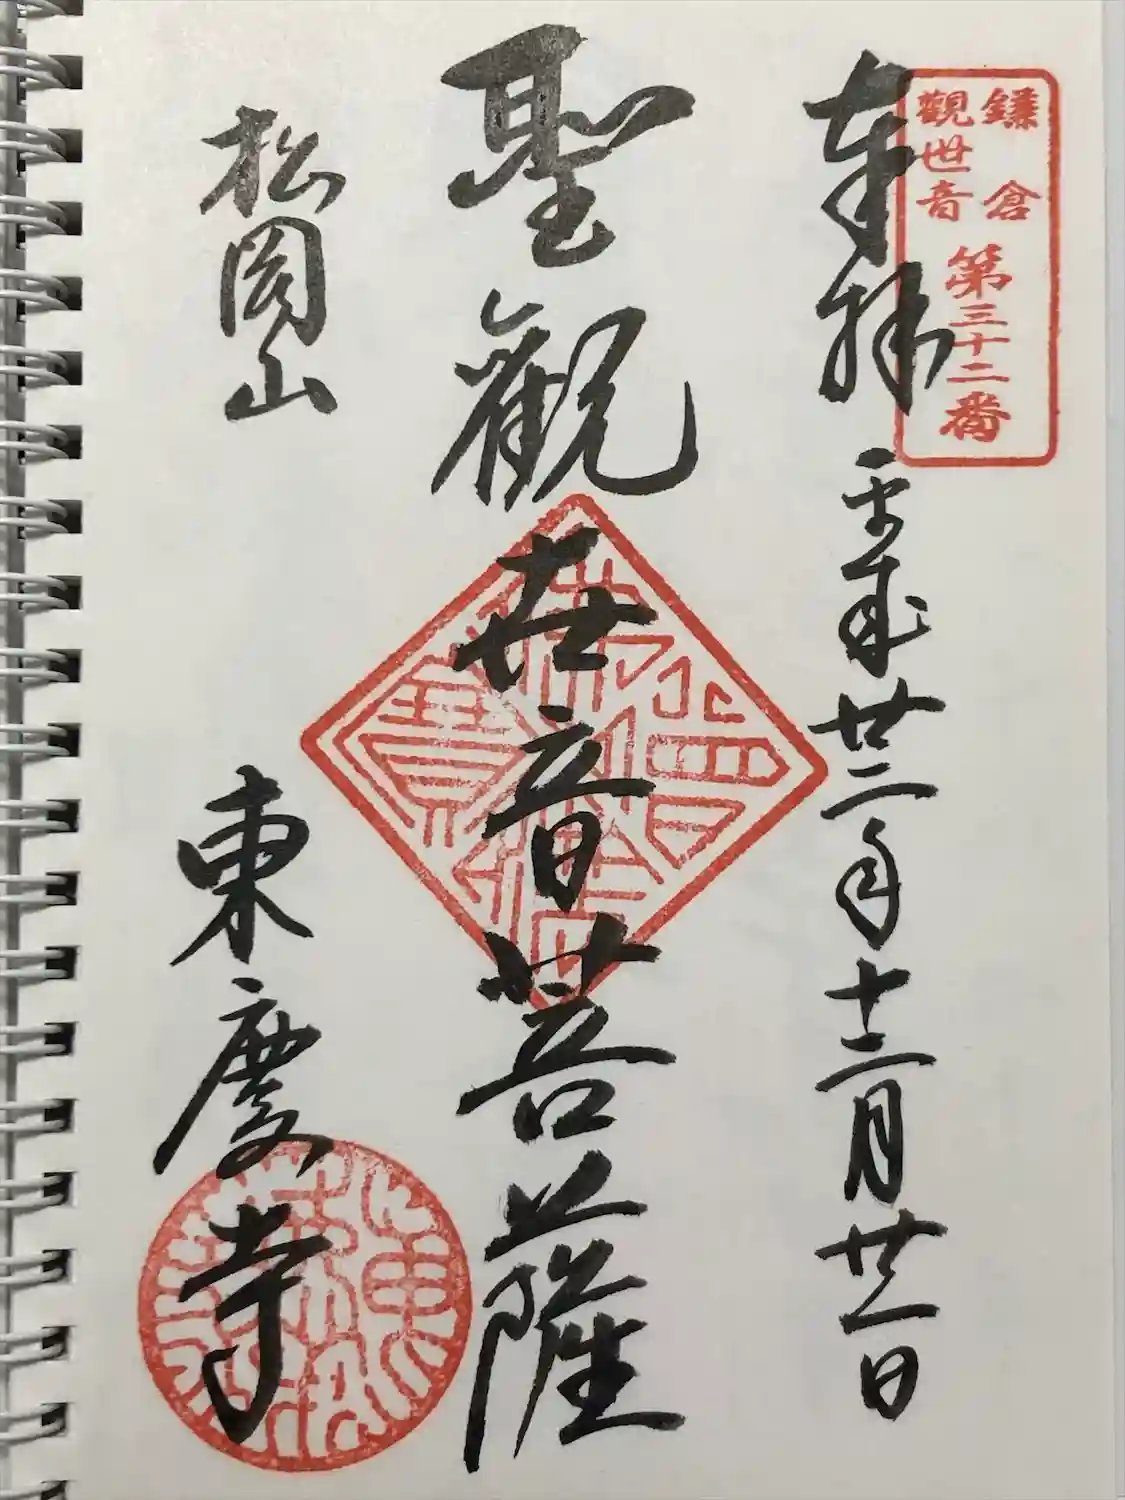 鎌倉
觀世音
第三十二番
奉拝 平成廿二年十二月廿一日
聖觀世音菩薩
松岡山
東慶寺